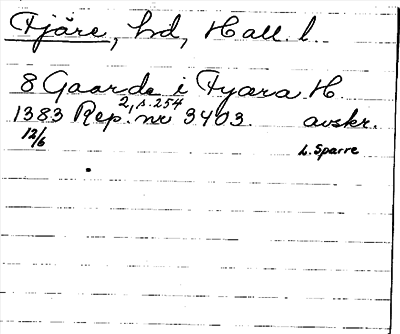 Fjäre, hd, Hall. l.
8 Gaarde i Fyæra H.
2, s. 254
1383 Rep. nr 3403. avskr.
12/6
L. Sparre